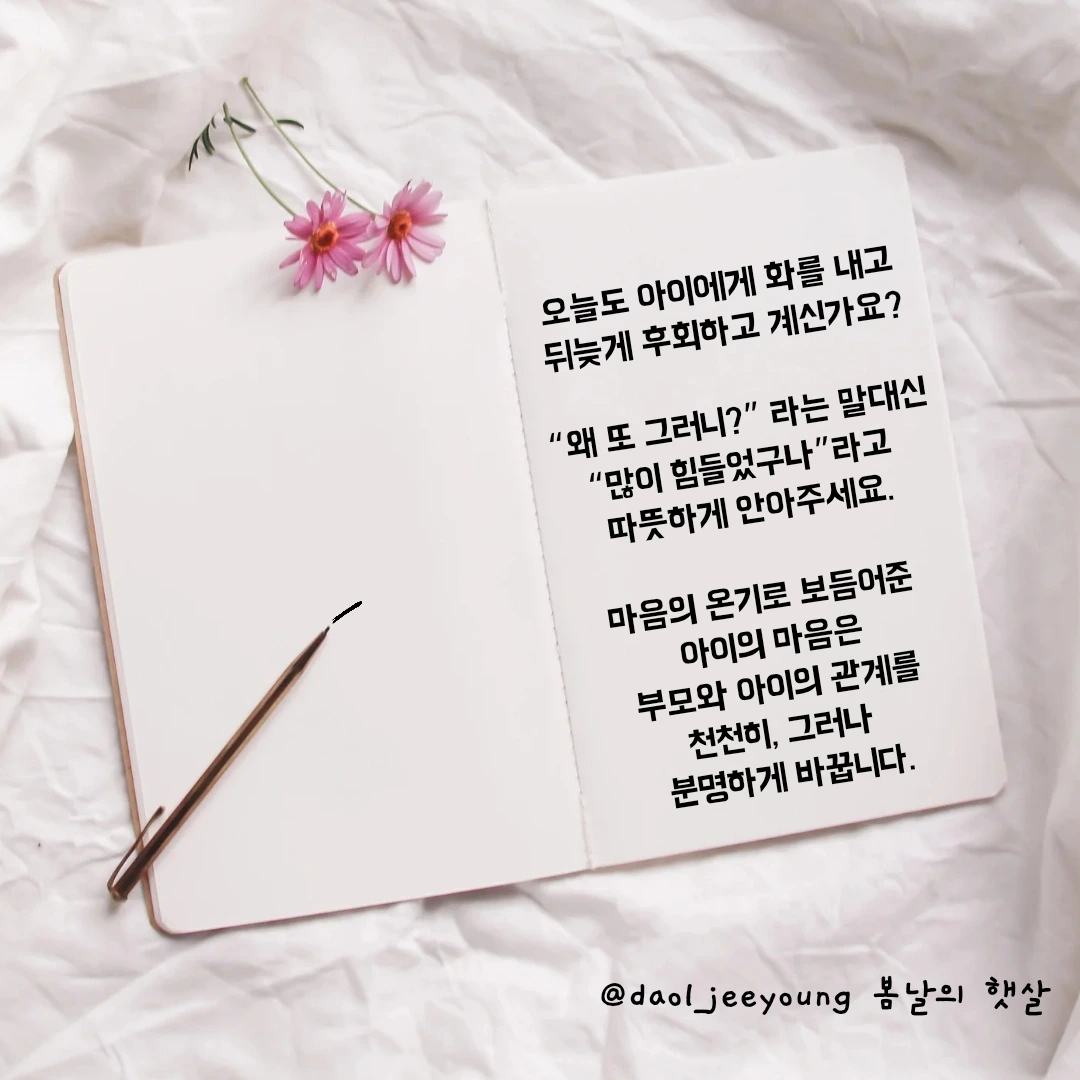 오늘도 아이에게 화를 내고
뒤늦게 후회하고 계신가요?
“왜 또 그러니?” 라는 말대신
“많이 힘들었구나”라고
따뜻하게 안아주세요.
마음의 온기로 보듬어준
아이의 마음은
부모와 아이의 관계를
천천히, 그러나
분명하게 바꿉니다.
@daol_jeeyoung 봄날의 햇살